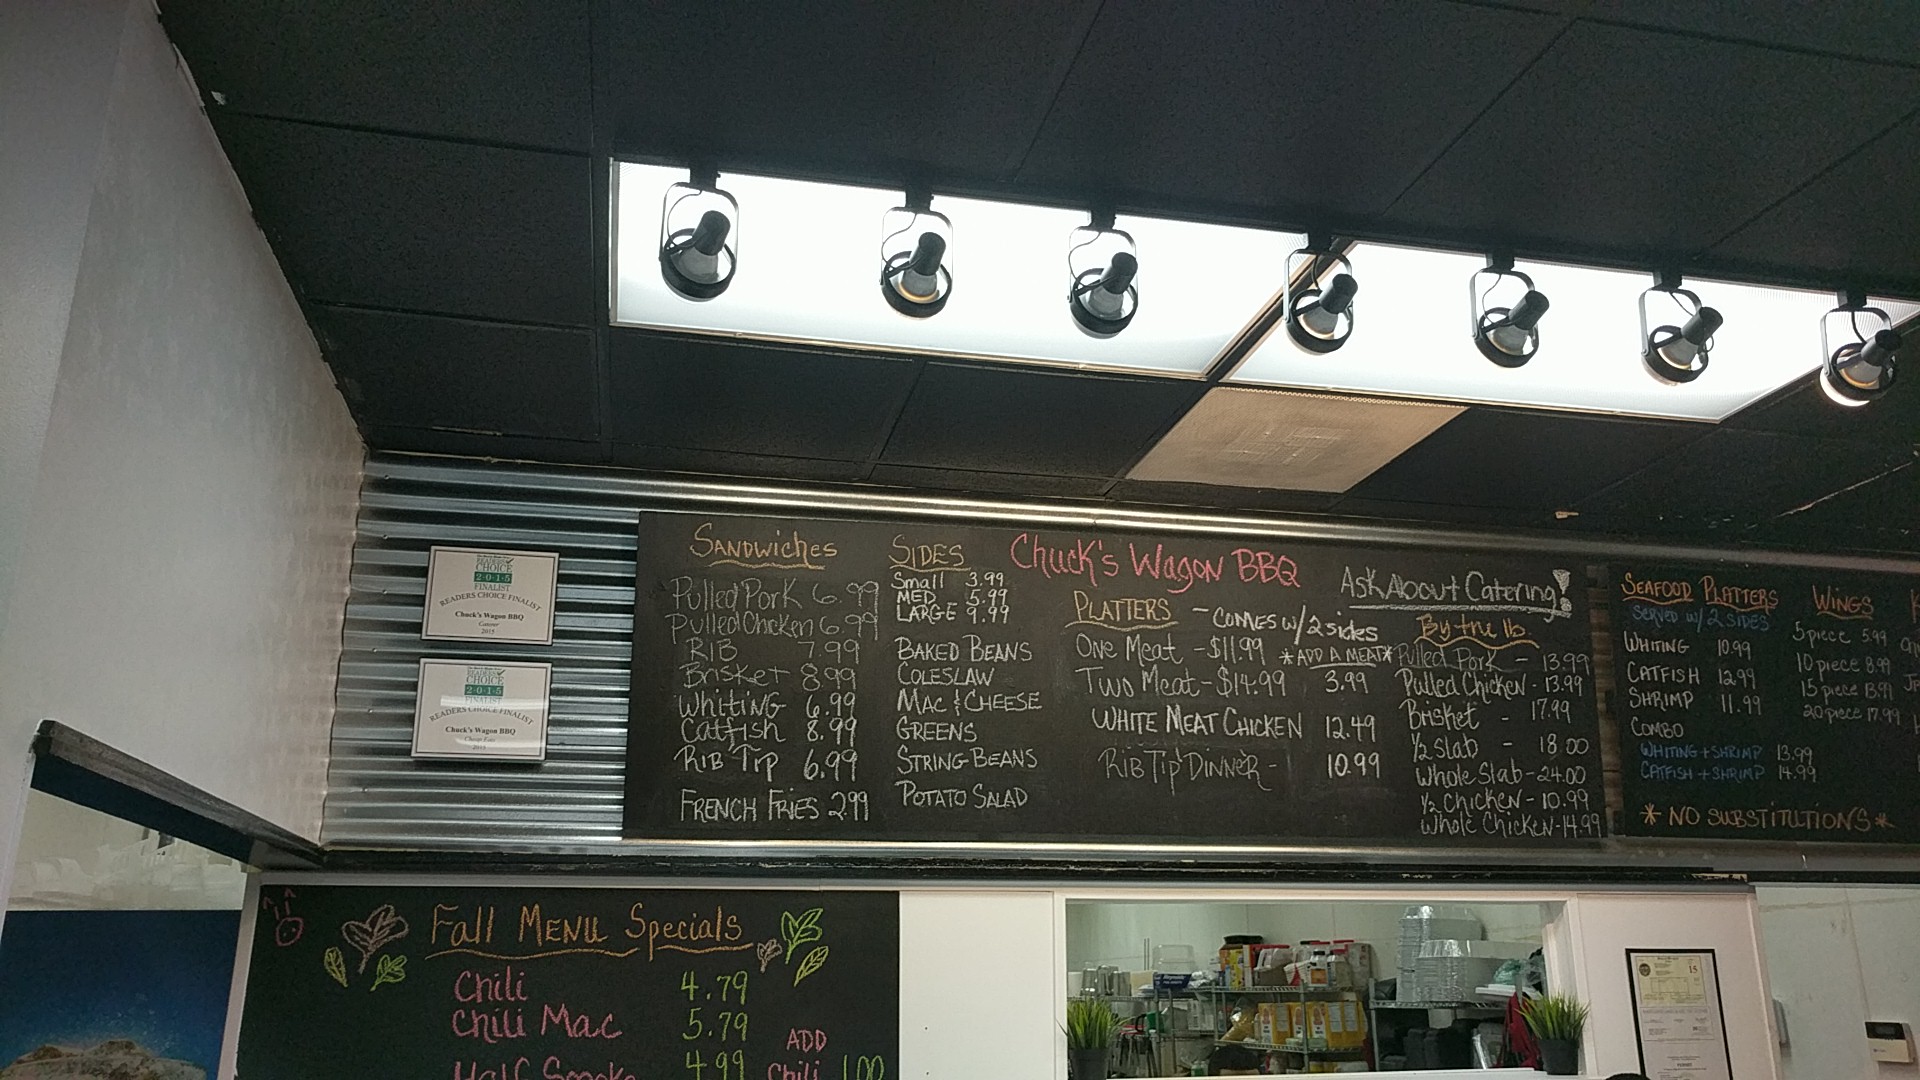 SANDWICHES
Pulled Pork 6.99
Pulled Chicken 6.99
RIB 7.99
Brisket 8.99
Whiting 6.99
Catfish 8.99
Rib Tip 6.99
FRENCH FRIES 2.99
SIDES
Small 3.99
MED 5.99
LARGE 9.99
BAKED BEANS
COLESLAW
MAC & CHEESE
GREENS
STRING BEANS
POTATO SALAD
Chuck's Wagon BBQ
PLATTERS - COMES W/ 2 sides
One Meat - $11.99 *ADD A MEAT*
Two Meat - $14.99 3.99
WHITE MEAT CHICKEN 12.49
Rib Tip Dinner - 10.99
Ask About Catering!
By the lb
Pulled Pork - 13.99
Pulled Chicken - 13.99
Brisket - 17.99
1/2 Slab - 18.00
Whole Slab - 24.00
1/2 Chicken - 10.99
Whole Chicken - 14.99
SEAFOOD PLATTERS
SERVED W/ 2 SIDES
WHITING 10.99
CATFISH 12.99
SHRIMP 11.99
COMBO
WHITING + SHRIMP 13.99
CATFISH + SHRIMP 14.99
* NO SUBSTITUTIONS *
WINGS
5 piece 5.99
10 piece 8.99
15 piece 13.99
20 piece 17.99
READERS CHOICE
2015
FINALIST
READERS CHOICE FINALIST
Chuck's Wagon BBQ
Caterer
2015
READERS CHOICE
2015
FINALIST
READERS CHOICE FINALIST
Chuck's Wagon BBQ
Cheap Eats
2015
Fall Menu Specials
Chili 4.79
Chili Mac 5.79
Half Smoke 4.99
ADD
Chili 1.00